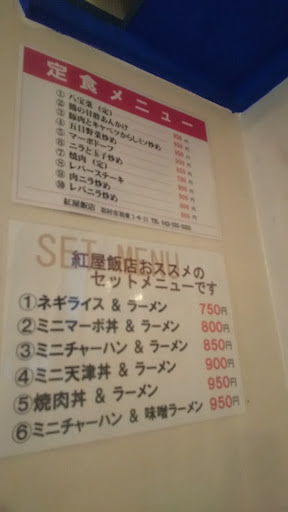 定食メニュー
① 八宝菜 (定)
② 鶏の甘酢あんかけ
③ 豚肉とキャベツからしミソ炒め
④ 五目野菜炒め
⑤ マーボドーフ
⑥ ニラと玉子炒め
⑦ 焼肉 (定)
⑧ レバーステーキ
⑨ 肉ニラ炒め
⑩ レバニラ炒め
紅屋飯店
SET MENU
紅屋飯店おススメの
セットメニューです
①ネギライス & ラーメン 750円
②ミニマーボ丼 & ラーメン 800円
③ミニチャーハン & ラーメン 850円
④ミニ天津丼 & ラーメン 900円
⑤焼肉丼 & ラーメン 950円
⑥ミニチャーハン & 味噌ラーメン 950円